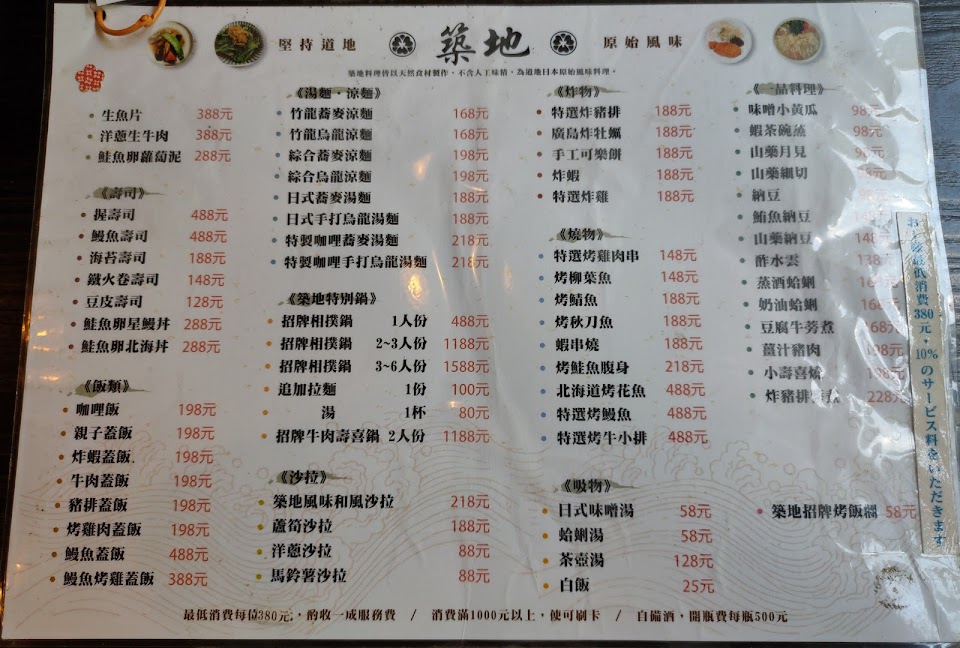 堅持道地
築地
原始風味
築地料理皆以天然食材製作，不含人工味精，為道地日本原始風味料理。
生魚片 388元
洋蔥生牛肉 388元
鮭魚卵蘿蔔泥 288元
《壽司》
握壽司 488元
鰻魚壽司 488元
海苔壽司 188元
鐵火卷壽司 148元
豆皮壽司 128元
鮭魚卵星鰻丼 288元
鮭魚卵北海丼 288元
《飯類》
咖哩飯 198元
親子蓋飯 198元
炸蝦蓋飯 198元
牛肉蓋飯 198元
豬排蓋飯 198元
烤雞肉蓋飯 198元
鰻魚蓋飯 488元
鰻魚烤雞蓋飯 388元
《湯麵．涼麵》
竹龍蕎麥涼麵 168元
竹龍烏龍涼麵 168元
綜合蕎麥涼麵 198元
綜合烏龍涼麵 198元
日式蕎麥湯麵 188元
日式手打烏龍湯麵 188元
特製咖哩蕎麥湯麵 218元
特製咖哩手打烏龍湯麵 218元
《築地特別鍋》
招牌相撲鍋 1人份 488元
招牌相撲鍋 2~3人份 1188元
招牌相撲鍋 3~6人份 1588元
追加拉麵 1份 100元
湯 1杯 80元
招牌牛肉壽喜鍋 2人份 1188元
《沙拉》
築地風味和風沙拉 218元
蘆筍沙拉 188元
洋蔥沙拉 88元
馬鈴薯沙拉 88元
《炸物》
特選炸豬排 188元
廣島炸牡蠣 188元
手工可樂餅 188元
炸蝦 188元
特選炸雞 188元
《燒物》
特選烤雞肉串 148元
烤柳葉魚 148元
烤鯖魚 188元
烤秋刀魚 188元
蝦串燒 188元
烤鮭魚腹身 218元
北海道烤花魚 488元
特選烤鰻魚 488元
特選烤牛小排 488元
《吸物》
日式味噌湯 58元
蛤蜊湯 58元
茶壺湯 128元
白飯 25元
《一品料理》
味噌小黃瓜 98元
蝦茶碗蒸 98元
山藥月見 98元
山藥細切
納豆
鮪魚納豆
山藥納豆 148元
酢水雲 138元
蒸酒蛤蜊
奶油蛤蜊
豆腐牛蒡煮
薑汁豬肉 198元
小壽喜燒
炸豬排 228元
築地招牌烤飯糰 58元
最低消費380元・10%のサービス料をいただきます
最低消費每位380元，酌收一成服務費 / 消費滿1000元以上，使可刷卡 / 自備酒，開瓶費每瓶500元